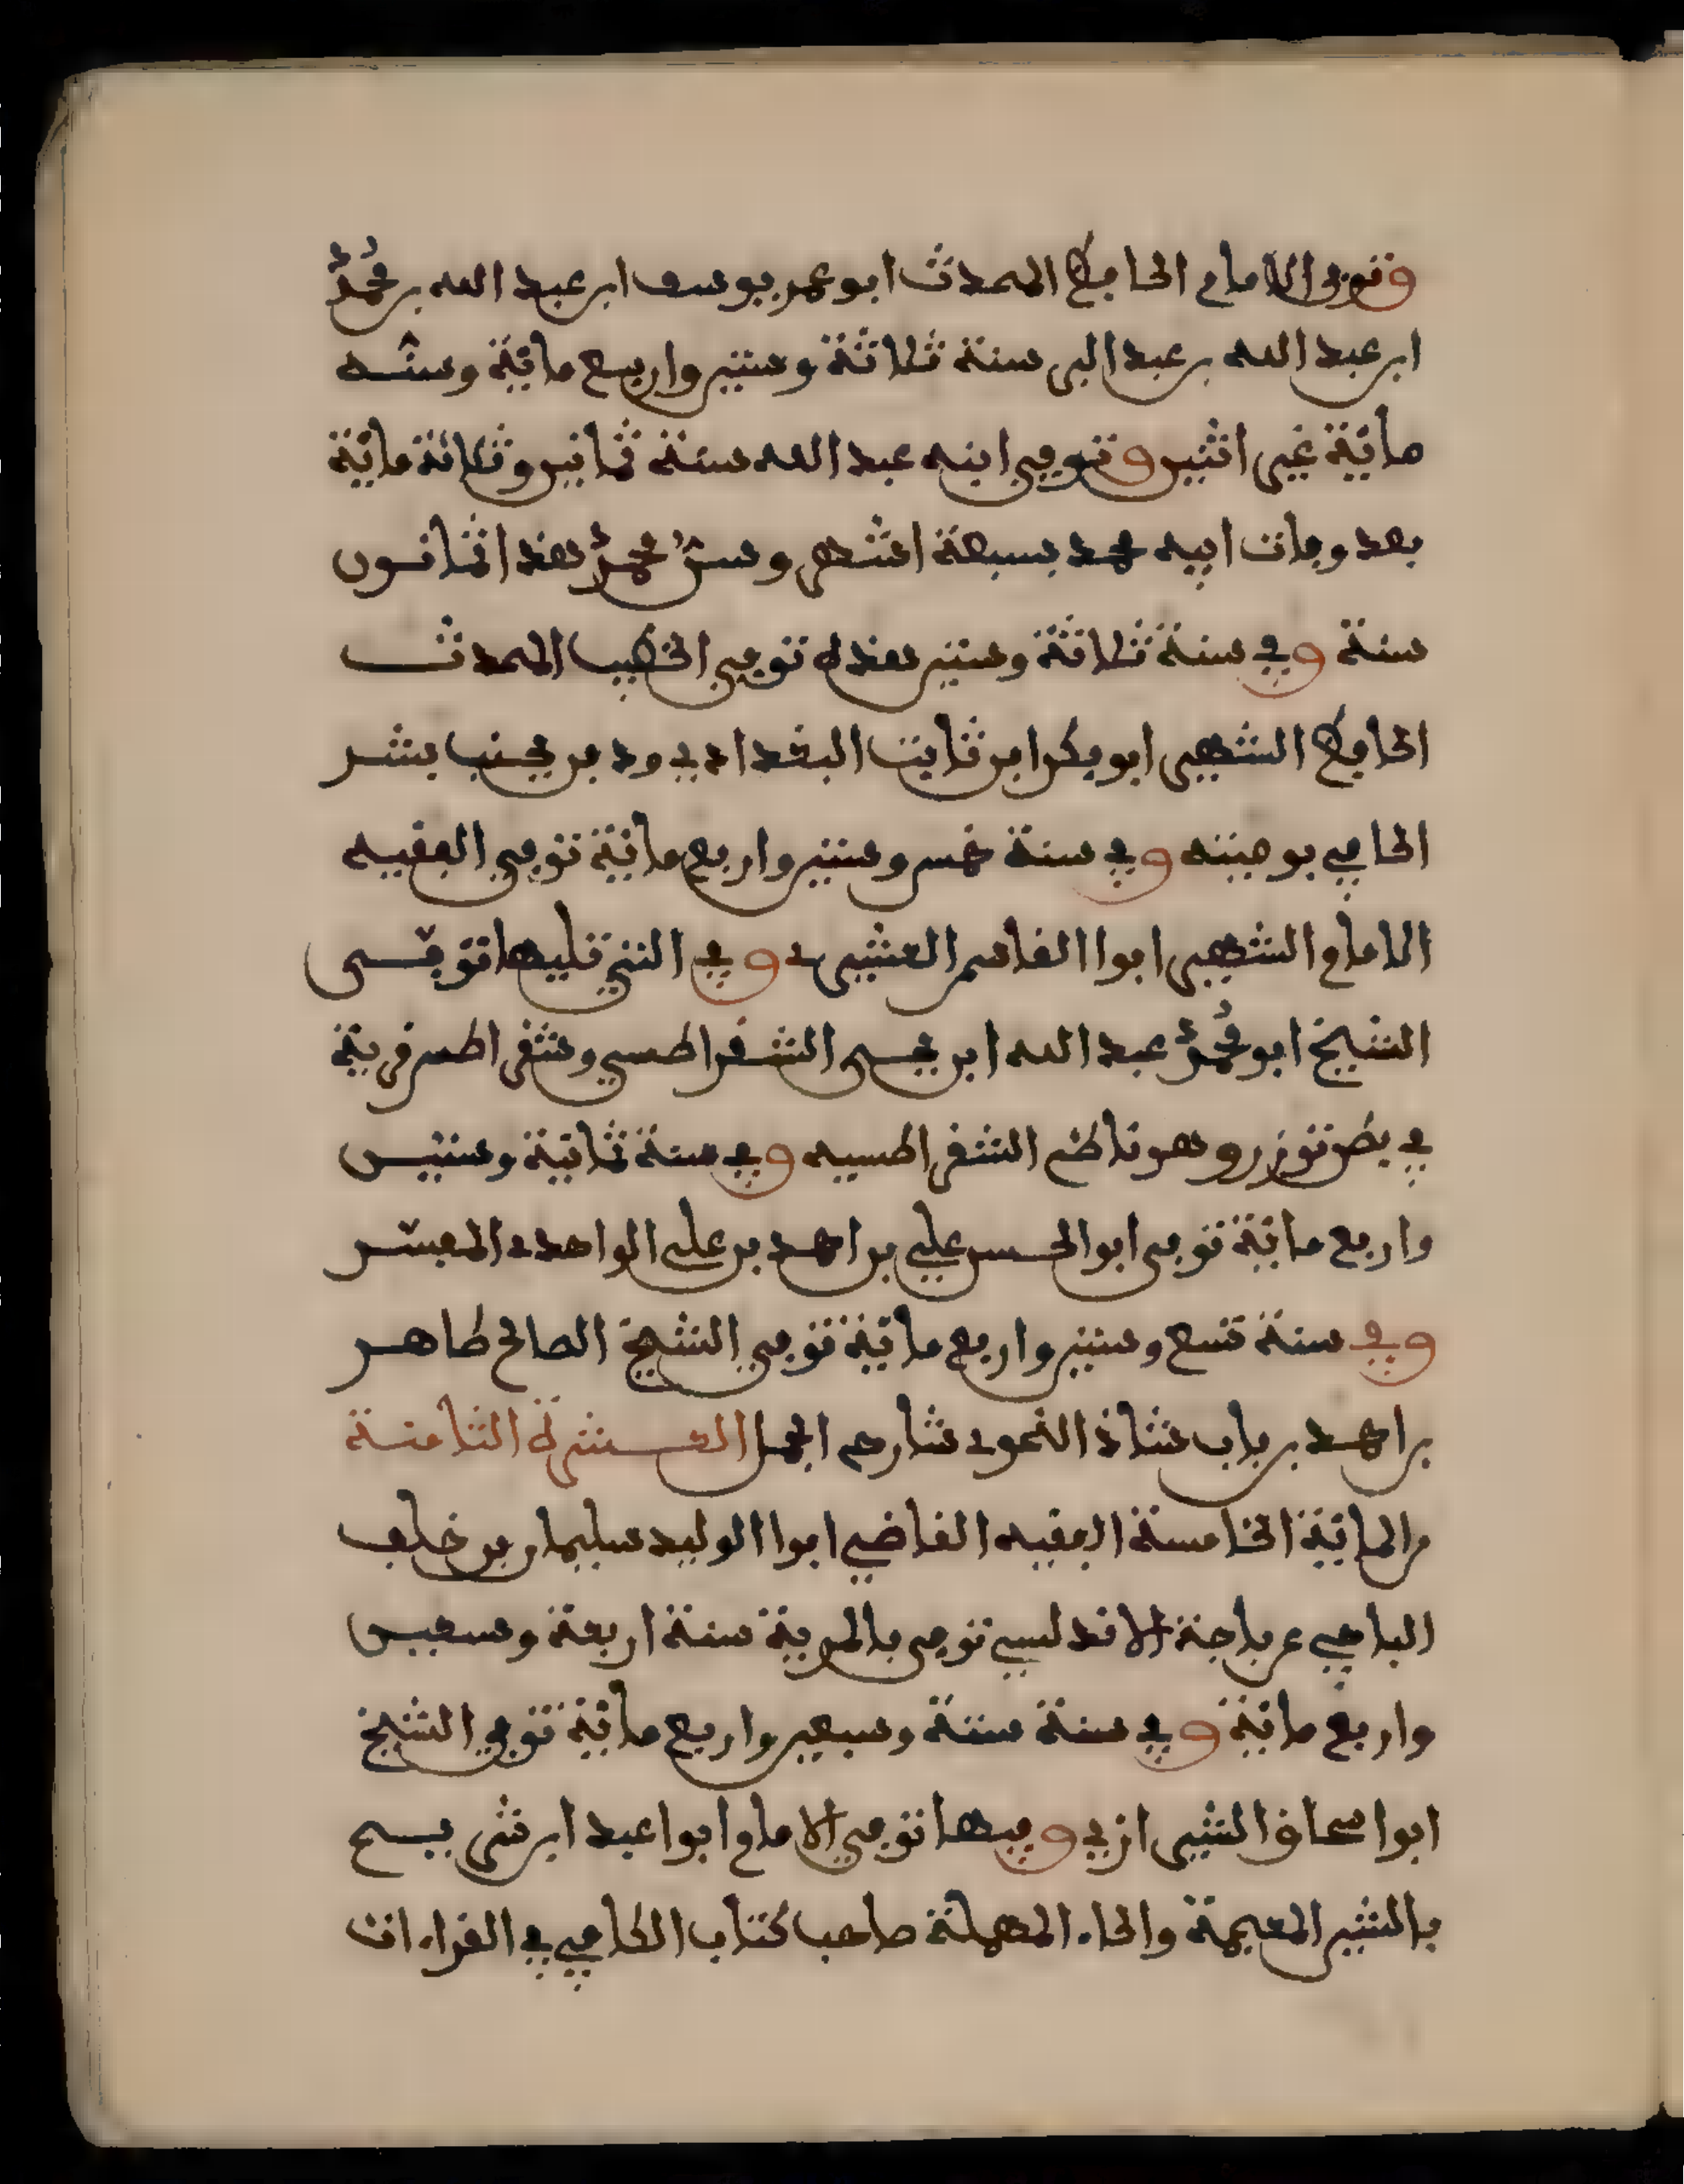 وتوفى الامام الحافظ المحدث ابو عمر يوسف ابن عبد الله بن محمد
ابن عبد الله بن عبد البر سنة ثلاثة وستين واربع مائة وسنه
مائة غير اثنين وتوفي ابنه عبد الله سنة ثمانين وثلاثة مائة
بعد وفات ابيه محمد بسبعة اشهر وسن محمد هذا ثمانون
سنة وفي سنة ثلاثة وستين هذه توفي الخطيب المحدث
الحافظ الشهير ابو بكر ابن ثابت البغدادي ودفن بجنب بشر
الحافي بوصيته وفي سنة خمس وستين واربع مائة توفي الفقيه
الامام الشهير ابوا القاسم القشيرى وفي التي تليها توفى
الشيخ ابو محمد عبد الله ابن يحيى الشقراطسي وشقراطس قرية
في بطن توزر وهو ناظم الشقراطسيه وفي سنة ثمانية وستين
واربع مائة توفى ابو الحسن علي بن احمد بن علي الواحدى المفسر
وفي سنة تسع وستين واربع مائة توفي الشيخ الصالح طاهر
بن احمد بن باب شاذ النحوى شارح الجمل العشرة الثامنة
من المائة الخامسة الفقيه القاضي ابوا الوليد سليمان بن خلف
الباجي من باجة الاندلسي توفى بالمرية سنة اربعة وسبعين
واربع مائة وفي سنة ستة وسبعين واربع مائة توفي الشيخ
ابوا اسحاق الشيرازي وفيها توفي الامام ابوا عبد ابن شريح
بالشين المعجمة والحاء المهملة صاحب كتاب الكافي في القراءات